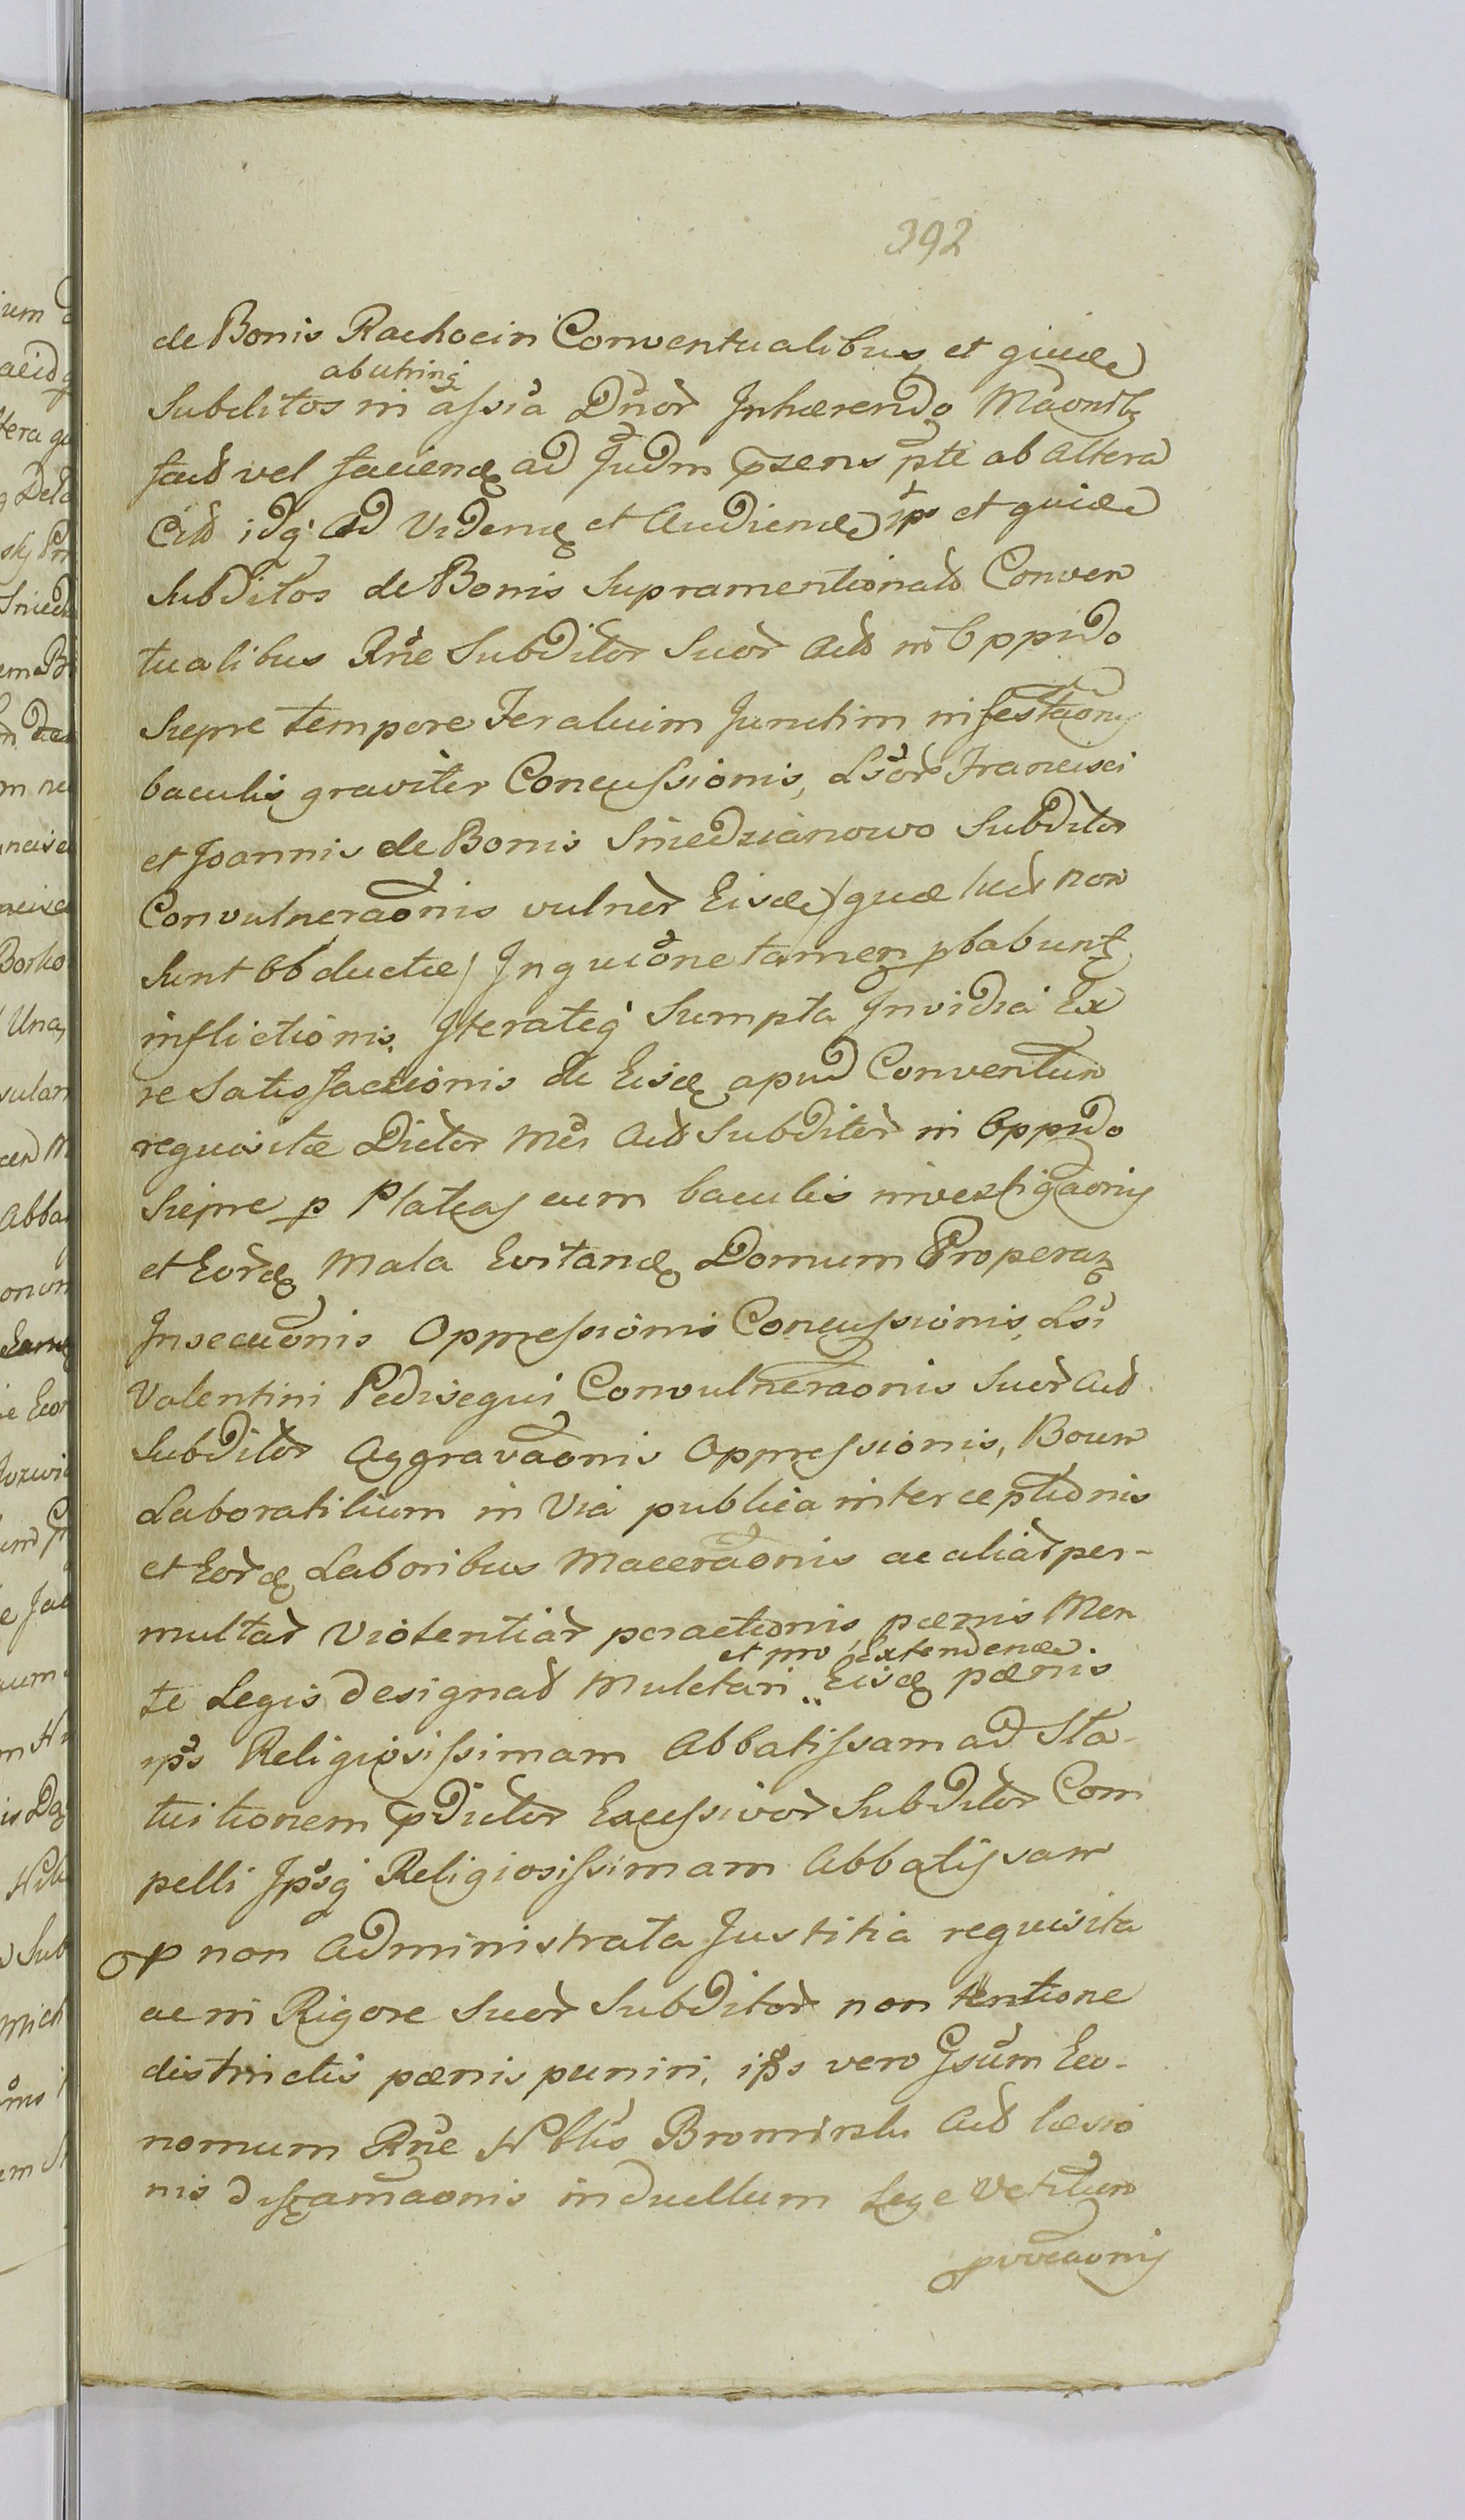 392
de Bonis Rachocin Conventualibus et quæ
abutrinq
Subditos in assia Dnor Inhærendo Maonib
fact vel faciend ad Judm pzens pte ab Altera
Citt idq Ad Videnq et Audiend ips et quæ
Subditos de Bonis Supramentionatt Conven
tualibus Rne Subditor Suor Actt in Oppido
Siepre tempore Feraluim Junctim infestaonis
baculis graviter Concussionis, Lsor Francisci
et Joannis de Bonis Sniedzianowo Subditor
Convulneraonis vulner Eisd / quæ licet non
Sunt Obductæ / Inquione tamen pbabunt
inflictionis, Iterateq Sumpta Invidia Ex
re Satisfactionis de Eisd apud Conventum
requisitæ Dictor Mei Actt Subditor in Oppido
Siepre p Plateas cum baculis investigaonis
et Eord Mala Evitand Domum Properan
Insecuonis Oppressionis Concussionis, Lsi
Valentini Pedisequi Convulneraonis Suor Actt
Subditor Aggravaonis Oppressionis, Boum
Laboratilium in Via publica interceptionis
et Eord Laboribus Maceraonis ac aliar per-
multar Violentiar peractionis, pænis Men
et pro Extendend
te Legis designatt Mulctari Eisd pænis
ips Religiosissimam Abbatissam ad Sta-
tuitionem pdictor Excessivor Subditor Com
pelli Ipsq Religiosissimam Abbatissam
p non Administrata Justitia requisita
ac in Rigore Suor Subditor non tentione
districtis pænis puniri, ips vero Gsum Eco-
nomum Rne Nblis Brominski Actt læsio
nis diffamaonis in duellum Lege Vetitum
pvocaonis